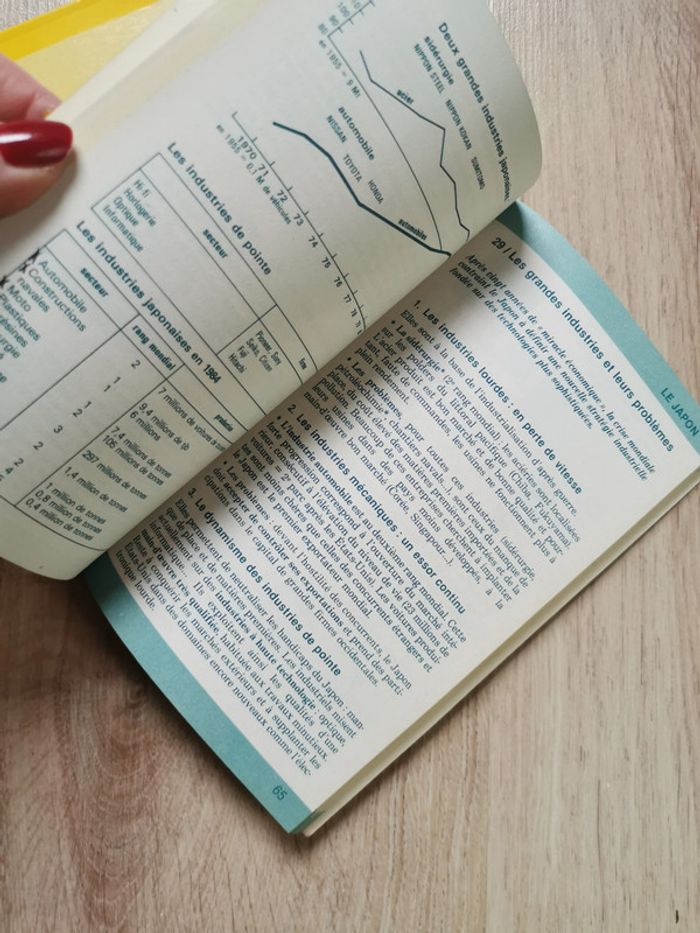 Deux grandes industries japonaises
sidérurgie
NIPPON STEEL NIPPON KOKAN SUMITOMO
acier
100
90
80
en 1955 = 9 Mt
automobile
NISSAN TOYOTA HONDA
automobiles
1970 71 72 73 74 75 76 77 78
en 1955 = 0,1 M de véhicules
Les industries de pointe
secteur
firme
Hi-fi
Horlogerie
Optique
Informatique
Pioneer
Seiko, Citizen
Fuji
Hitachi
Les industries japonaises en 1984
secteur
rang mondial
Automobile
Constructions
navales
Moto
Plastiques
2
1
1
2
3
2
2
4
7 millions de voitures
9,4 millions de tjb
6 millions
7,4 millions de tonnes
105 millions de tonnes
297 millions de tonnes
1,4 million de tonnes
1 million de tonnes
0,8 million de tonnes
0,4 million de tonnes
LE JAPON
29 / Les grandes industries et leurs problèmes
Après vingt années de « miracle économique », la crise mondiale
contraint le Japon à définir une nouvelle stratégie industrielle
fondée sur des technologies plus sophistiquées.
1. Les industries lourdes : en perte de vitesse
Elles sont à la base de l'industrialisation d'après guerre.
• La sidérurgie* (2e rang mondial) : les aciéries sont localisées
sur les polders du littoral pacifique (Chiba, Fukuyama).
L'acier produit est bon marché et de bonne qualité et pour-
tant, faute de commandes, les usines ne fonctionnent plus à
plein
• Les problèmes, pour toutes ces industries (sidérurgie,
pétrolochimie* chantiers navals...) sont ceux du manque de
place, du coût élevé des matières premières importées et de la
main-d'œuvre. Beaucoup de ces entreprises cherchent à implanter
leurs usines dans des pays moins développés, à la
main-d'œuvre bon marché (Corée, Singapour...).
2. Les industries mécaniques : un essor continu
• L'industrie automobile est au deuxième rang mondial. Cette
forte progression correspond à l'ouverture du marché inté-
rieur, consécutif à l'élévation du niveau de vie (23 millions de
parc après les États-Unis). Les voitures produi-
tes sont moins chères que celles des concurrents étrangers et
le Japon est le premier exportateur mondial.
• Les problèmes : devant l'hostilité des concurrents, le Japon
doit accepter de contrôler ses exportations et prend des parti-
cipations dans le capital de grandes firmes occidentales.
3. Le dynamisme des industries de pointe
Elles permettent de neutraliser les handicaps du Japon : man-
que de place et de matières premières. Les industriels misent
actuellement sur des industries à haute technologie : optique,
informatique... Ils exploitent ainsi les qualités d'une
main-d'œuvre très qualifiée, habituée aux travaux minutieux,
à conquérir les marchés extérieurs et à supplanter les
États-Unis dans des domaines encore nouveaux comme l'élec-
tronique lourde.
65